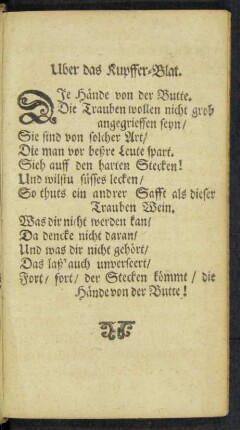 Uber das Kupffer-Blat.
DJe Hände von der Butte.
Die Trauben wollen nicht grob
angegrieffen seyn/
Sie sind von solcher Art/
Die man vor beßre Leute spart.
Sieh auff den harten Stecken!
Und wilstu süsses lecken/
So thuts ein andrer Safft als dieser
Trauben Wein.
Was dir nicht werden kan/
Da dencke nicht daran/
Und was dir nicht gehört/
Das laß' auch unverseert/
Fort/ fort/ der Stecken kömmt/ die
Hände von der Butte!